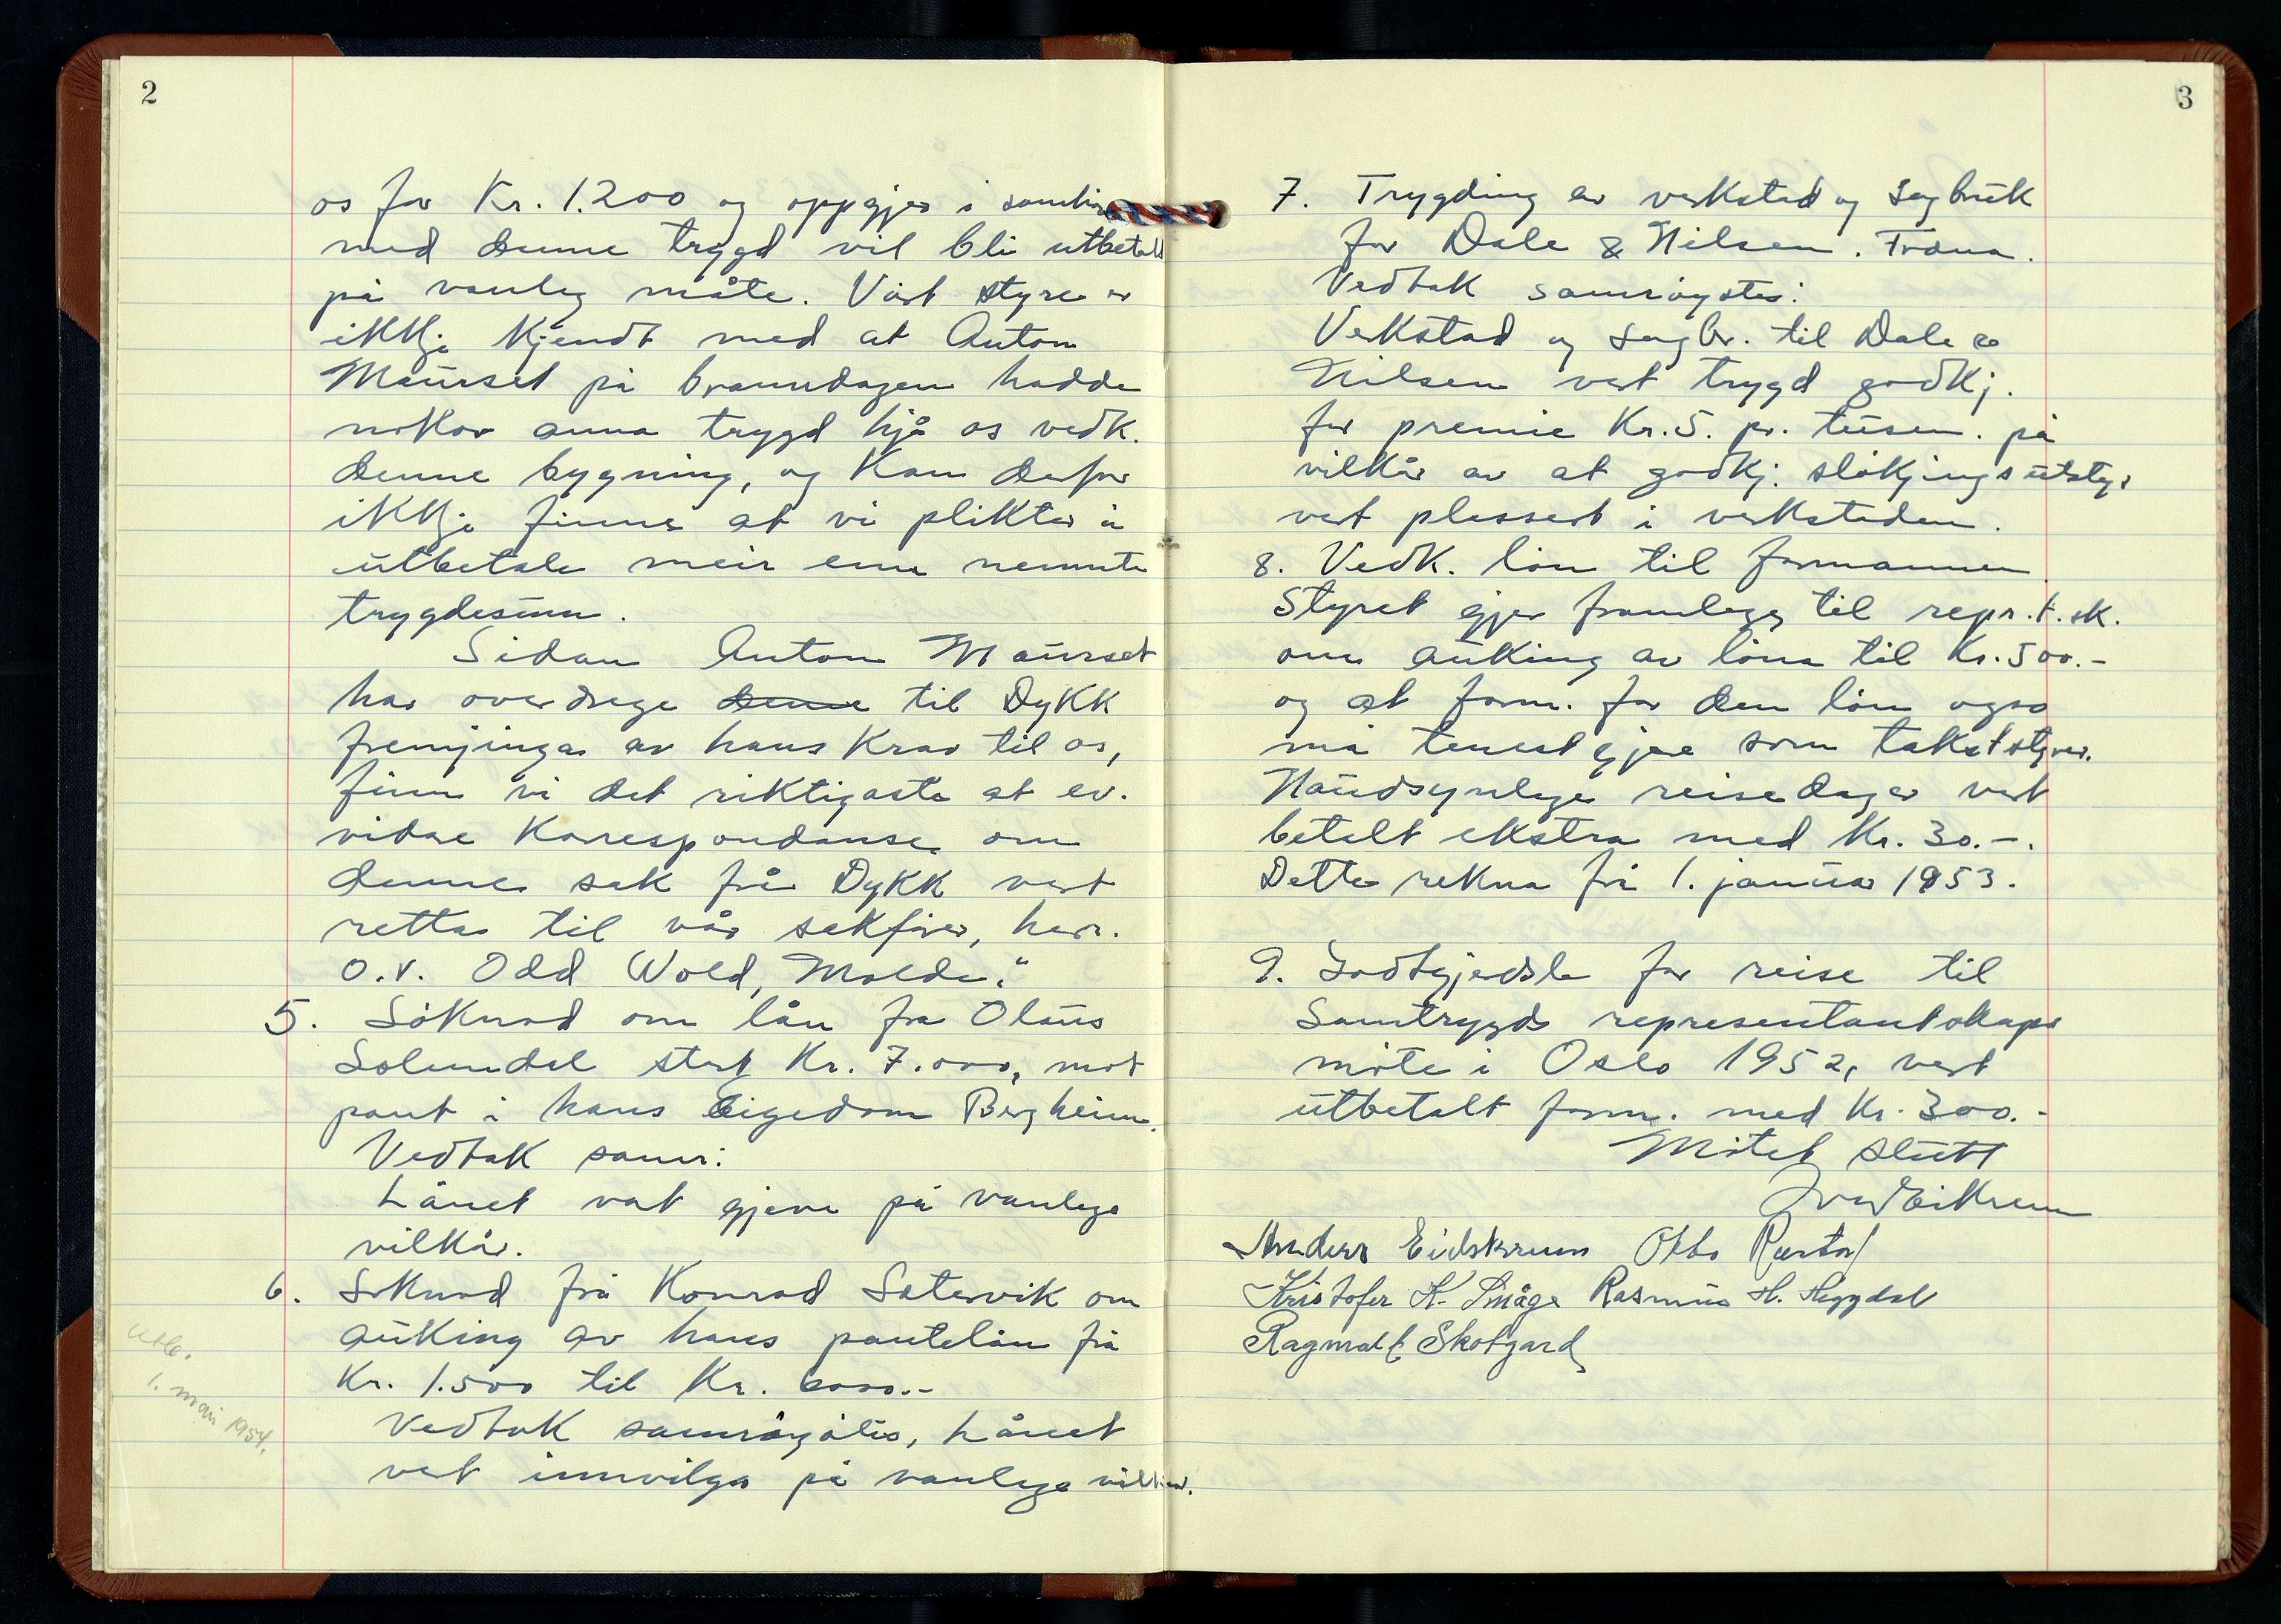 2
os for Kr. 1.200 og oppgjer i samhøve
med denne trygd vil bli utbetalt
på vanleg måte. Vårt styre er
ikkje kjendt med at Anton
Maurset på branndagen hadde
nokor anna trygd hjå os vedk.
denne bygning, og kan derfor
ikkje finne at vi plikter å
utbetale meir enn nemnte
trygdesum.
Sidan Anton Maurset
har overdrege denne til Dykk
fremjinga av hans krav til os,
finn vi det riktigaste at ev.
vidare korrespondanse om
denne sak frå Dykk vert
retta til vår sakförer, herr.
O.r. Odd Wold, Molde."
5. Söknad om lån fra Olaus
Solemdal stort Kr. 7.000, mot
pant i hans eigedom Bergheim.
Vedtak samr:
Lånet vat gjeve på vanlege
vilkår.
6. Söknad frå Konrad Sætervik om
auking av hans pantelån frå
Kr. 1.500 til Kr. 6000.-
Vedtak samröystes, Lånet
vert innvilga på vanlege vilkår.
utb.
1. mai 1954.
3
7. Trygding av verkstad og Sagbruk
for Dale & Nilsen. Fræna.
Vedtak samröystes:
Verkstad og sagbr. til Dale &
Nilsen vert trygd godkj.
for premie Kr. 5. pr. tusen. på
vilkår av at godkj. slökjingsutstyr
vert plassert i verkstaden.
8. Vedk. lön til formannen
Styret gjer framlegg til repr.t.sk.
om auking av löna til Kr. 500.-
og at form. for den lön også
må tenestgjere som takststyrer.
Naudsynlege reisedager vert
betalt ekstra med Kr. 30.-.
Dette rekna frå 1. januar 1953.
9. Godtgjerdsle for reise til
Samtrygds representantskaps
möte i Oslo 1952, vert
utbetalt form. med Kr. 300.-
Mötet slutt
Ivar Eikrem
Anders Eidskrem Otto Rastad
Kristofer K. Småge Rasmus H. Hegdal
Ragnvald Skotgard